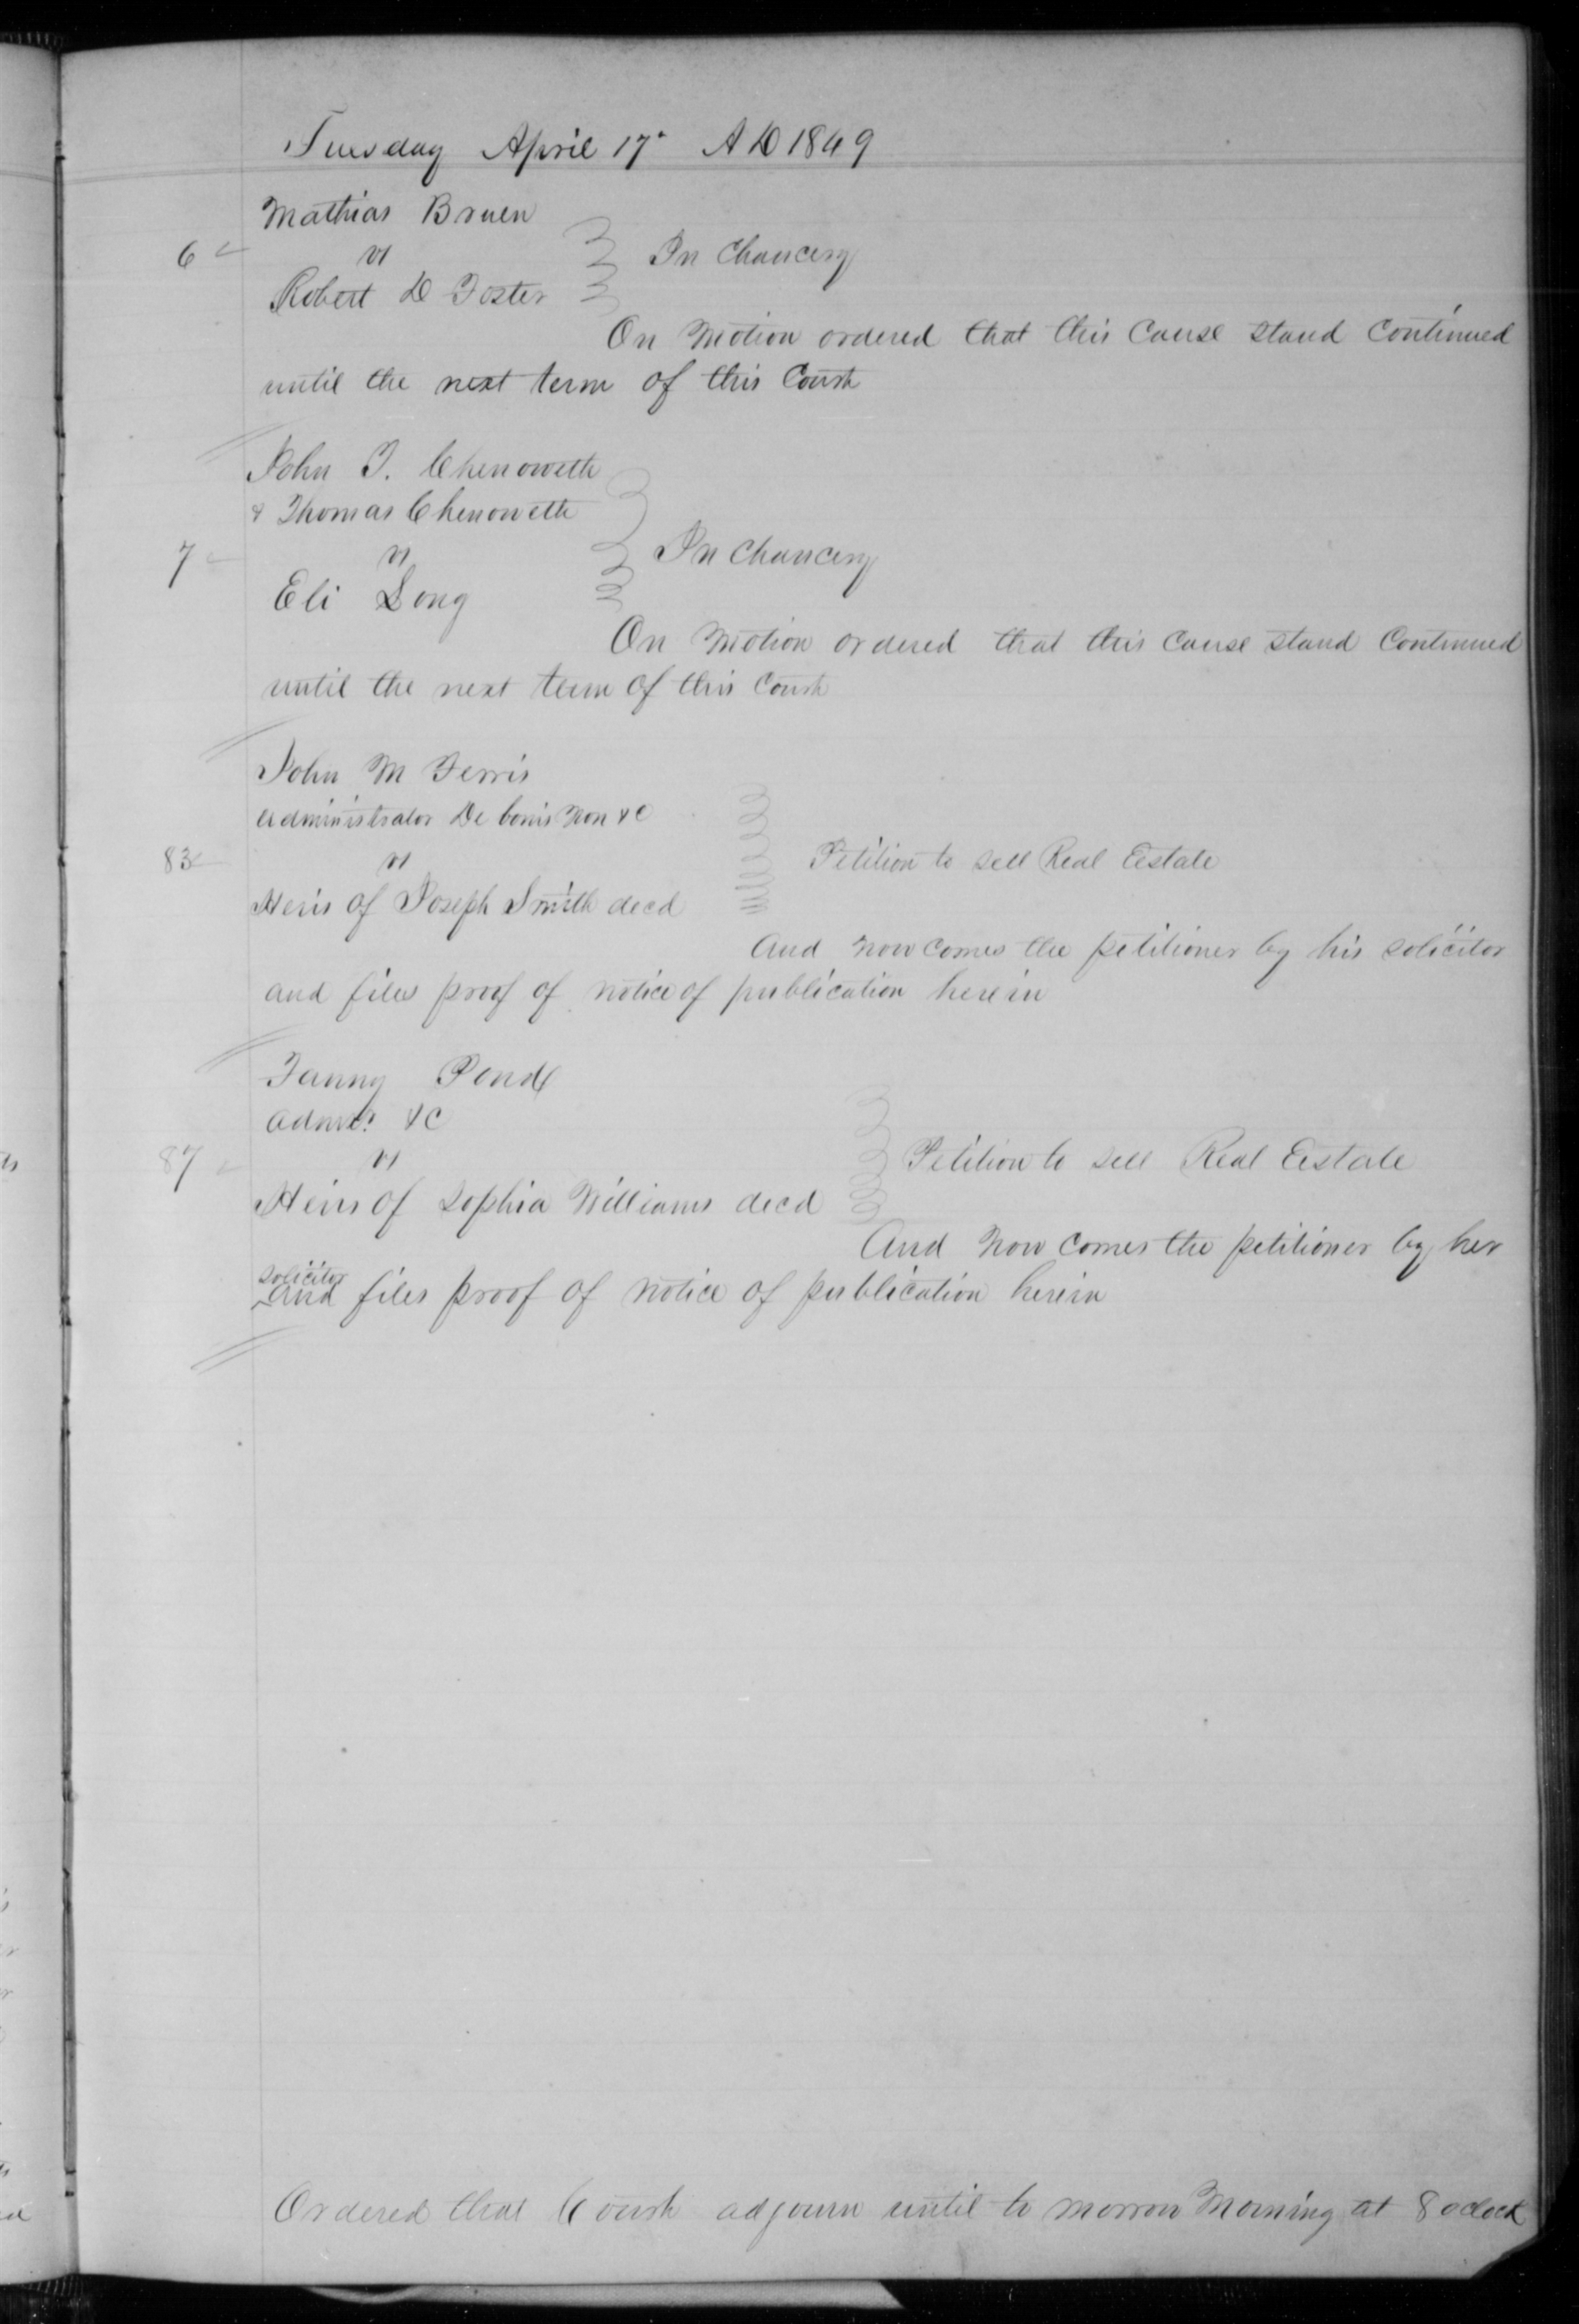 Tuesday April 17" A D 1849
Mathias Bruen
6 vs In Chancery
Robert D Foster
On Motion ordered that this Cause stand Continued
until the next term of this Court
John F. Chenoweth
& Thomas Chenoweth
7 vs In Chancery
Eli Long
On Motion ordered that this Cause stand Continued
until the next term of this Court
John M Ferris
Administrator De bonis Non &C
83 vs Petition to sell Real Eestate
Heris of Joseph Smith decd
And now comes the petitioner by his solicitor
and files proof of notice of publication herein
Fanny Pond
Admx. &C
87 vs Petition to sell Real Eestate
Heirs of Sophia Williams decd
And Now Comes the petitioner by her
solicitor
and files proof of notice of publication herein
Ordered that Court adjourn until to morrow Morning at 8 oclock